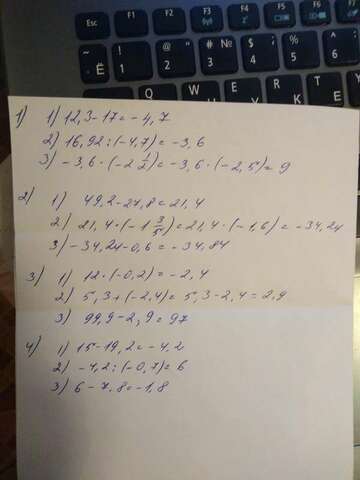 Esc F1 F2 F3 F4 F5 F6
~ Ё ! 1 @ 2 " # № 3 $ 4 % 5 ^ 6
1) 1) 12,3-17=-4,7
2) 16,92:(-4,7)=-3,6
3) -3,6·(-2 1/2)=-3,6·(-2,5)=9
2) 1) 49,2-27,8=21,4
2) 21,4·(-1 3/5)=21,4·(-1,6)=-34,24
3) -34,24-0,6=-34,84
3) 1) 12·(-0,2)=-2,4
2) 5,3+(-2,4)=5,3-2,4=2,9
3) 99,9-2,9=97
4) 1) 15-19,2=-4,2
2) -4,2:(-0,7)=6
3) 6-7,8=-1,8